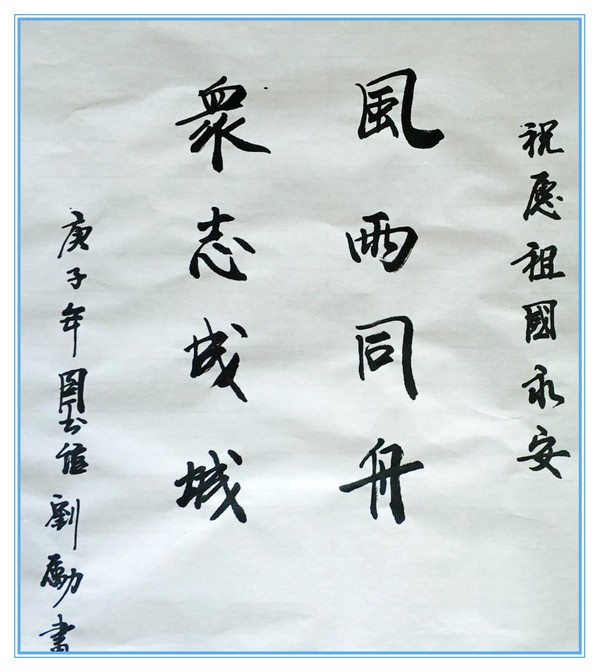 祝愿祖國永安
風雨同舟
衆志成城
庚子年圖书馆劉勵書